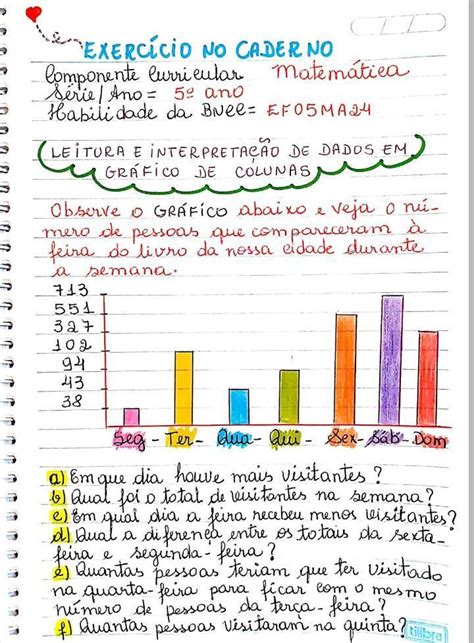 EXERCÍCIO NO CADERNO
Componente Curricular Matemática
Série/Ano = 5º ano
Habilidade da BNCC= EF05MA24
LEITURA E INTERPRETAÇÃO DE DADOS EM
GRÁFICO DE COLUNAS
Observe o GRÁFICO abaixo e veja o nú-
mero de pessoas que compareceram à
feira do livro da nossa cidade durante
a semana.
713
551
327
102
94
43
38
Seg - Ter - Qua - Qui - Sex - Sáb - Dom
a) Em que dia houve mais visitantes?
b) Qual foi o total de visitantes na semana?
c) Em qual dia a feira recebeu menos visitantes?
d) Qual a diferença entre os totais da sexta-
feira e segunda-feira?
e) Quantas pessoas teriam que ter visitado
na quarta-feira para ficar com o mesmo
número de pessoas da terça-feira?
f) Quantas pessoas visitaram na quinta?
tilibra